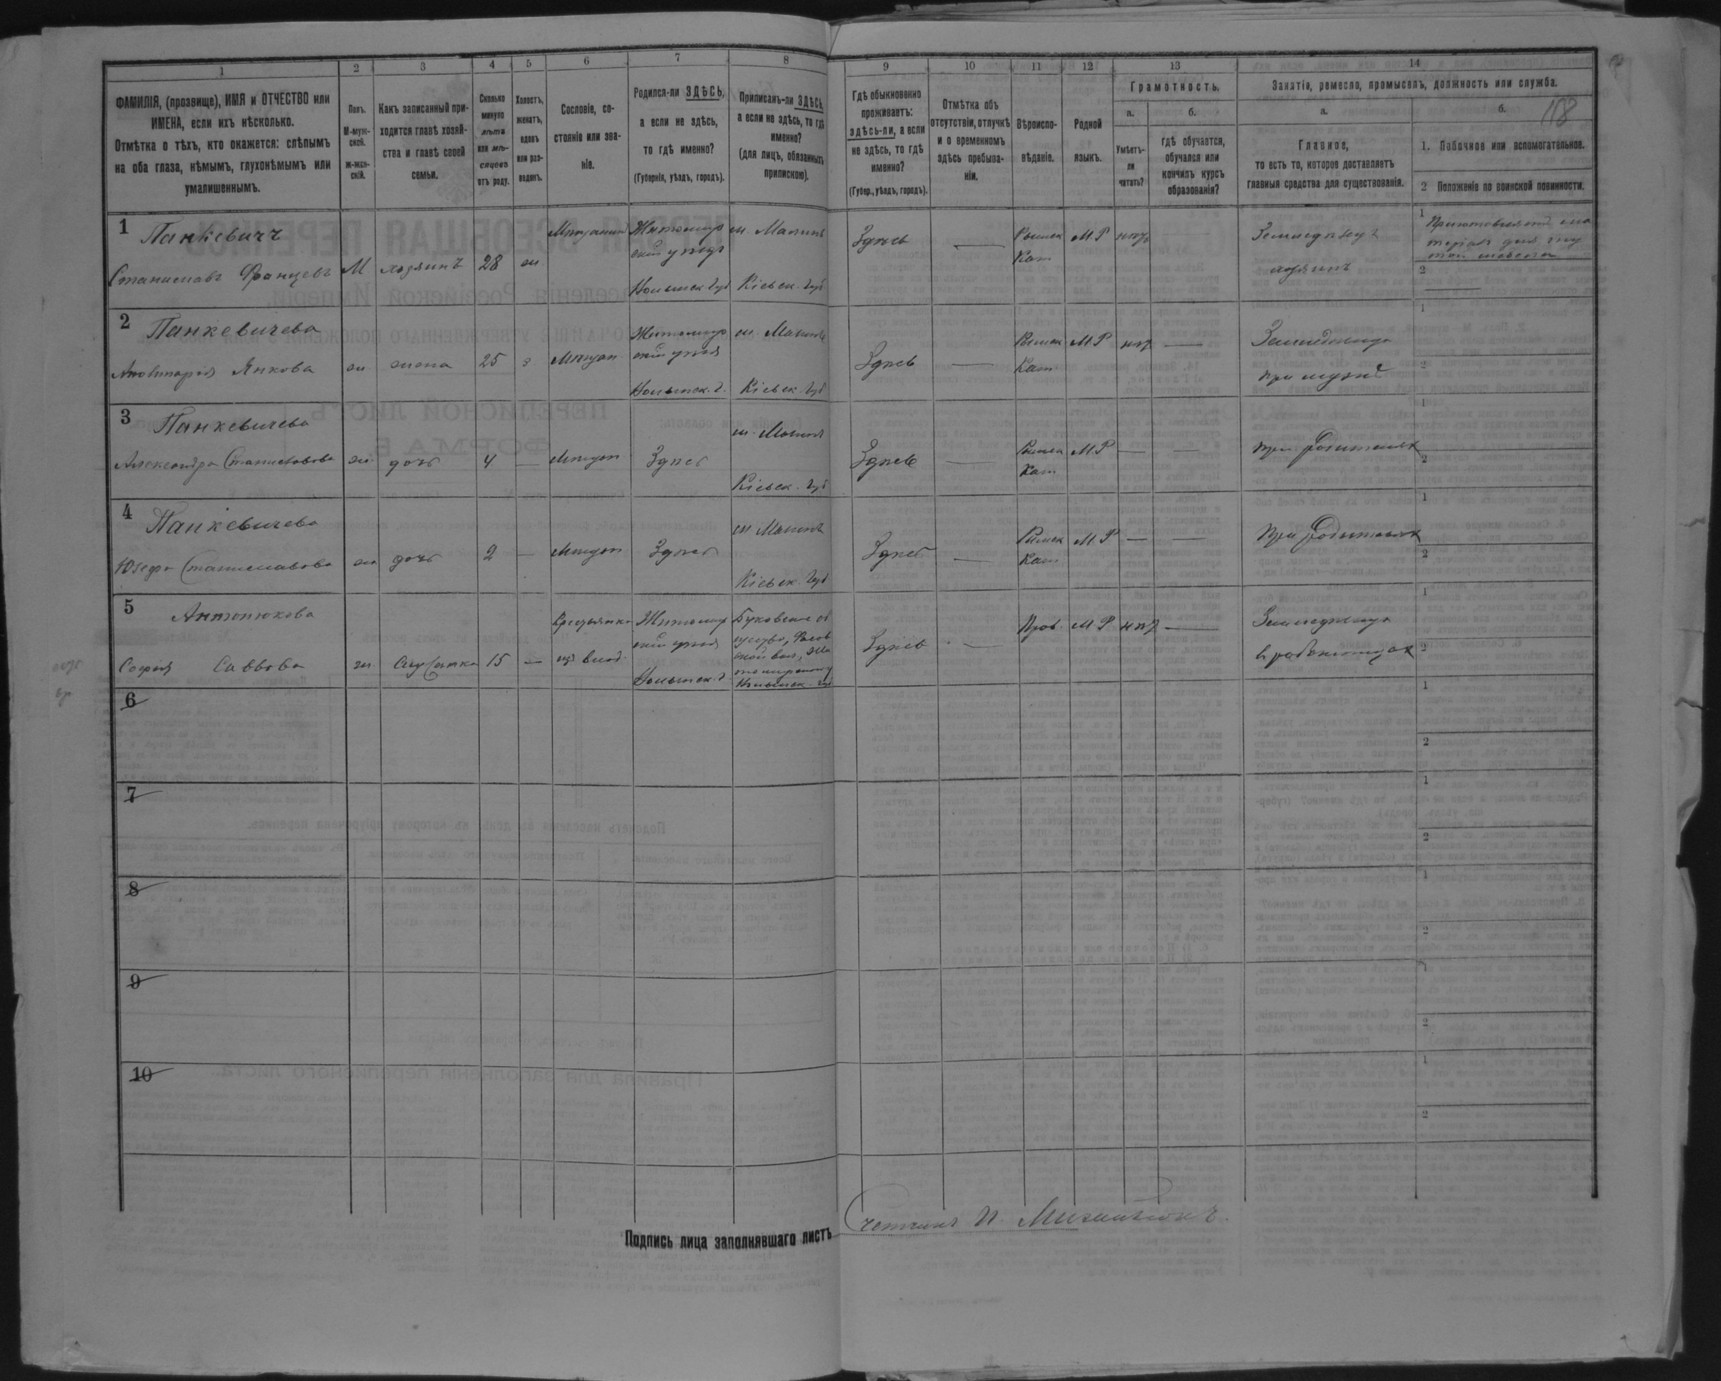 1 2 3 4 5 6 7 8
ФАМИЛІЯ, (прозвище), ИМЯ и ОТЧЕСТВО или
ИМЕНА, если ихъ нѣсколько.
Отмѣтка о тѣхъ, кто окажется: слѣпымъ
на оба глаза, нѣмымъ, глухонѣмымъ или
умалишеннымъ.
Полъ.
М-муж-
ской.
Ж-жен-
скій.
Какъ записанный при-
ходится главѣ хозяй-
ства и главѣ своей
семьи.
Сколько
минуло
лѣтъ
или мѣ-
сяцевъ
отъ роду.
Холостъ,
женатъ,
вдовъ
или раз-
веденъ.
Сословіе, со-
стояніе или зва-
ніе.
Родился-ли ЗДѢСЬ,
а если не здѣсь,
то гдѣ именно?
(Губернія, уѣздъ, городъ).
Приписанъ-ли ЗДѢСЬ,
а если не здѣсь, то гдѣ
именно?
(для лицъ, обязанныхъ
припискою).
9 10 11 12 13 14
Гдѣ обыкновенно
проживаетъ:
здѣсь-ли, а если
не здѣсь, то гдѣ
именно?
(Губер., уѣздъ, городъ).
Отмѣтка объ
отсутствіи, отлучкѣ
и о временномъ
здѣсь пребыва-
ніи.
Вѣроиспо-
вѣданіе.
Родной
языкъ.
Грамотность.
а.
Умѣетъ-
ли
читать?
б.
гдѣ обучается,
обучался или
кончилъ курсъ
образованія?
Занятіе, ремесло, промыселъ, должность или служба.
а.
Главное,
то есть то, которое доставляетъ
главныя средства для существованія.
б.
168
1. Побочное или вспомогательное.
2 Положеніе по воинской повинности.
1 Панкевичъ
Станиславъ Францевъ М хозяинъ 28 ж
Мѣщанинъ
Житомир
скій уѣздъ
Волынск. Губ
м. Малинъ
Кіевск. Губ
Здѣсь —
Римск
Кат
М Р нѣт —
Земледѣлецъ
хозяинъ
1
2
2 Панкевичева
Янкова ж жена 25 з Мѣщан
Житомир
скій уѣзд
Волынск. г.
м. Малинъ
Кіевск. Губ
Здѣсь —
Римск
Кат
М Р нѣт —
Земледѣлица
при мужѣ
1
2
3 Панкевичева
Александра Станиславова ж дочь 4 — Мѣщан Здѣсь
м. Малинъ
Кіевск. Губ
Здѣсь —
Римск
Кат
М Р — —
При Родителях
1
2
4 Панкевичева
Юзефа Станиславова ж дочь 2 — Мѣщан Здѣсь
м Малинъ
Кіевск. Губ
Здѣсь —
Римск
Кат
М Р — —
При Родителях
1
2
5 Антонюкова
София Саввова ж. Служанка 15 —
Крестьянка
из влад.
Житомир
скій уѣзд
Волынск. г
Здѣсь —
Прав. М Р нѣт —
Земледѣлица
в работницах
1
2
6
1
2
7
1
2
8
1
2
9
1
2
10
1
2
Подпись лица заполнявшаго листъ
Счетчикъ